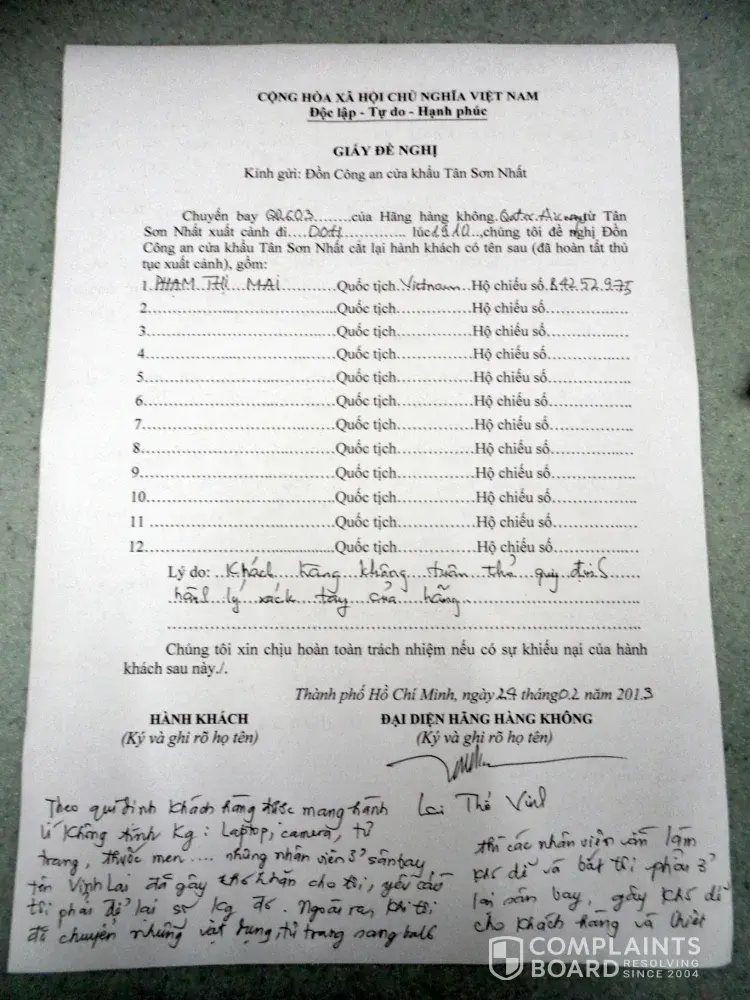 CỘNG HÒA XÃ HỘI CHỦ NGHĨA VIỆT NAM
Độc lập - Tự do - Hạnh phúc
GIẤY ĐỀ NGHỊ
Kính gửi: Đồn Công an cửa khẩu Tân Sơn Nhất
Chuyến bay QR603.........của Hãng hàng không.Qatar.Airways từ Tân
Sơn Nhất xuất cảnh đi....DOH........ lúc1910..,chúng tôi đề nghị Đồn
Công an cửa khẩu Tân Sơn Nhất cắt lại hành khách có tên sau (đã hoàn tất thủ
tục xuất cảnh), gồm:
1.PHẠM THỊ MAI............Quốc tịch.Vietnam..Hộ chiếu số.B4252975
2...................................Quốc tịch..............Hộ chiếu số..............
3...................................Quốc tịch..............Hộ chiếu số..............
4...................................Quốc tịch..............Hộ chiếu số..............
5...................................Quốc tịch..............Hộ chiếu số..............
6...................................Quốc tịch..............Hộ chiếu số..............
7...................................Quốc tịch..............Hộ chiếu số..............
8...................................Quốc tịch..............Hộ chiếu số..............
9...................................Quốc tịch..............Hộ chiếu số..............
10.................................Quốc tịch..............Hộ chiếu số..............
11 ................................Quốc tịch..............Hộ chiếu số..............
12.................................Quốc tịch..............Hộ chiếu số..............
Lý do: Khách hàng không tuân thủ quy định
hành lý xách tay của hãng
Chúng tôi xin chịu hoàn toàn trách nhiệm nếu có sự khiếu nại của hành
khách sau này./.
Thành phố Hồ Chí Minh, ngày 24 tháng 02 năm 2013
HÀNH KHÁCH
(Ký và ghi rõ họ tên)
ĐẠI DIỆN HÃNG HÀNG KHÔNG
(Ký và ghi rõ họ tên)
Lai Thế Vinh
Theo qui định khách hàng được mang hành
lí không tính Kg: Laptop, camera, tư
trang, thuốc men .... nhưng nhân viên ở sân bay
tên Vinh Lai đã gây khó khăn cho tôi, yêu cầu
tôi phải để lại số kg đó. Ngoài ra, khi tôi
đã chuyển những vật dụng, tư trang sang
thì các nhân viên vẫn làm
khó dễ và bắt tôi phải ở
lại sân bay, gây khó dễ
cho khách hàng và
COMPLAINTS
BOARD RESOLVING
SINCE 2004